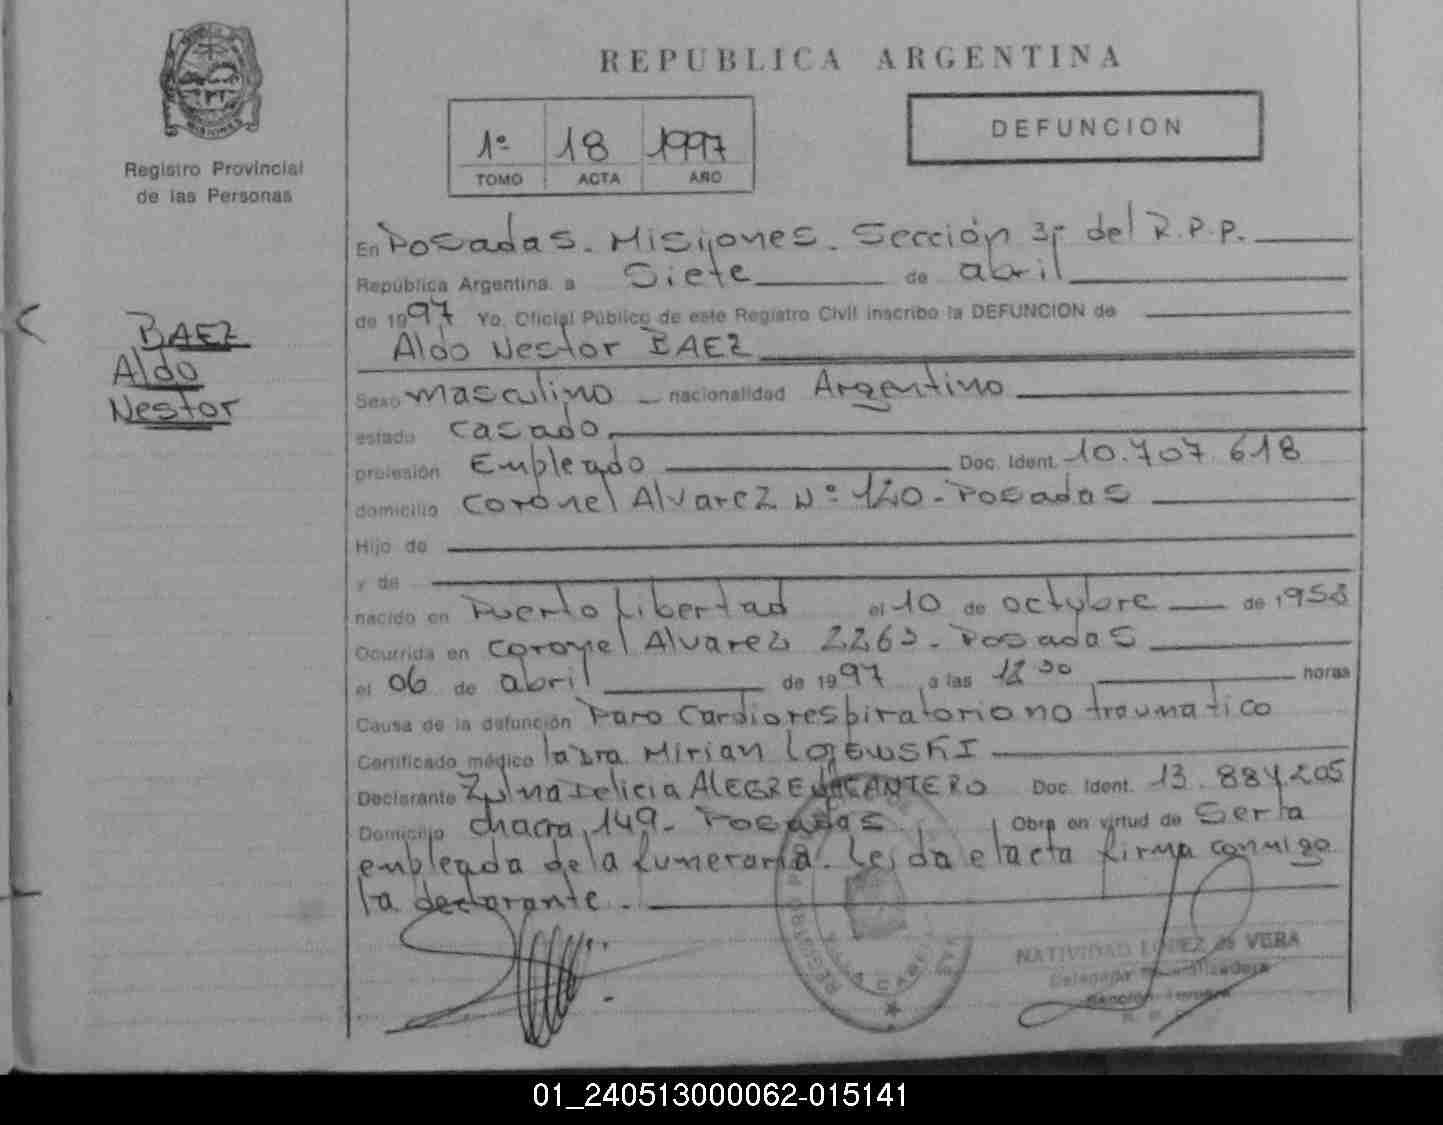 REPUBLICA ARGENTINA
1º 18 1997
TOMO ACTA AÑO
DEFUNCION
MISIONES
Registro Provincial
de las Personas
BAEZ
Aldo
Nestor
En Posadas. Misiones. Sección 3ª del R.P.P.
República Argentina a Siete de abril
de 1997 Yo, Oficial Público de este Registro Civil inscribo la DEFUNCION de
Aldo Nestor BAEZ
Sexo masculino nacionalidad Argentino
estado casado
profesión Empleado Doc. Ident. 10.707.618
domicilio Coronel Alvarez Nº 120 - Posadas
Hijo de
y de
nacido en Puerto Libertad el 10 de octubre de 1953
Ocurrida en Coronel Alvarez 2263 - Posadas
el 06 de abril de 1997 a las 12 30 horas
Causa de la defunción Paro Cardiorespiratorio no traumatico
Certificado médico la Dra Mirian
Declarante Zulma Delicia ALEGRE CANTERO Doc. Ident. 13.884.205
Domicilio chacra, 149 - Posadas Obra en virtud de Ser la
empleada de la funeraria. Leida el acta firma conmigo
la declarante.
NATIVIDAD LOPEZ de VERA
01_240513000062-015141